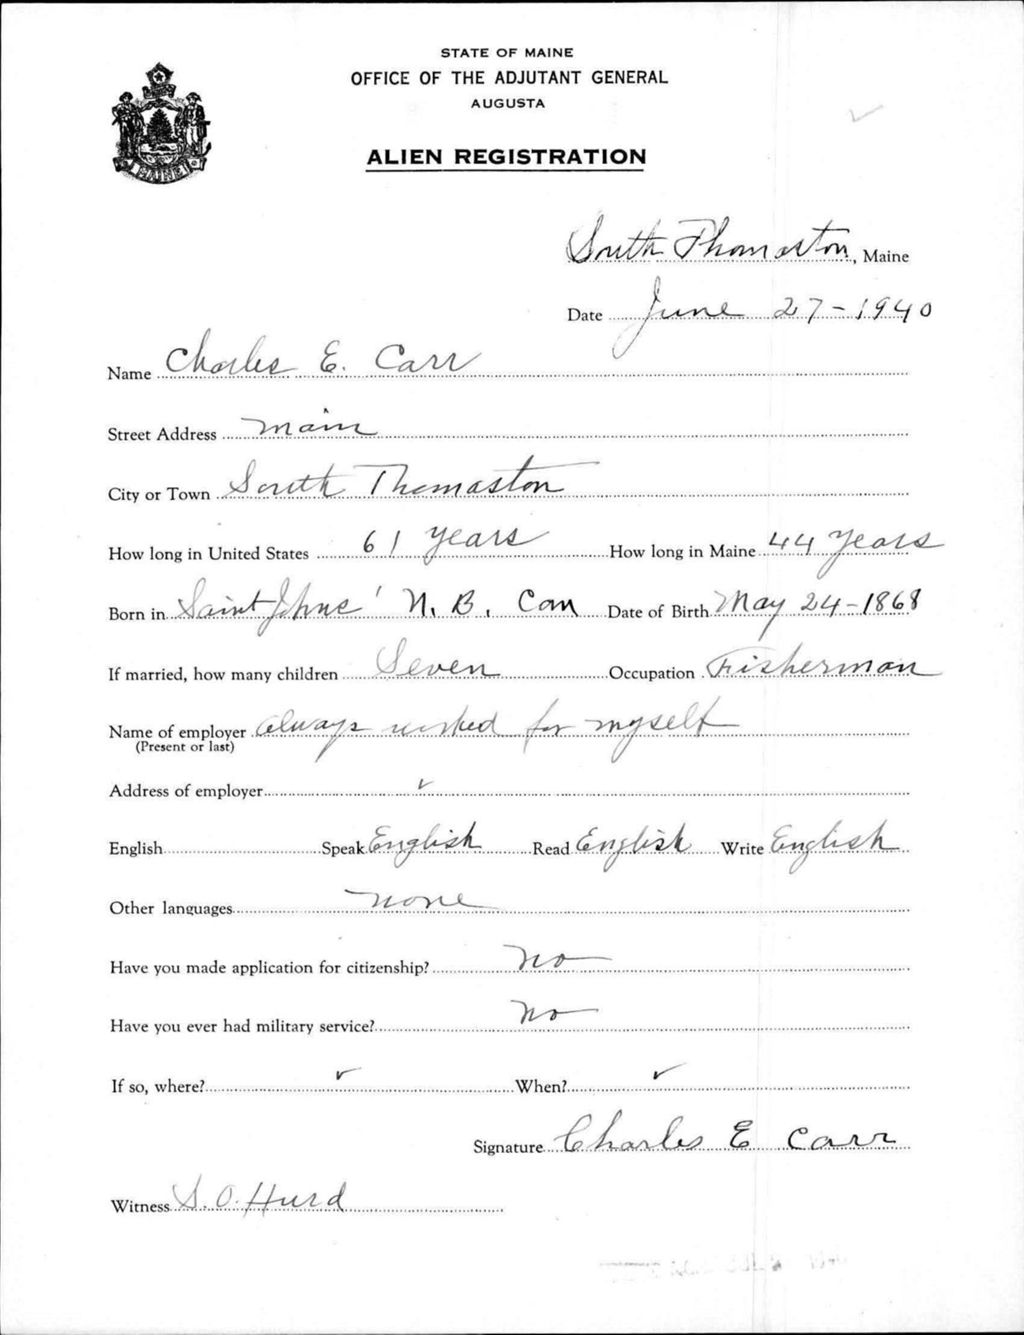 STATE OF MAINE
OFFICE OF THE ADJUTANT GENERAL
AUGUSTA
ALIEN REGISTRATION
MAINE
South Thomaston, Maine
Date June 27-1940
Name Charles E. Carr
Street Address Main
City or Town South Thomaston
How long in United States 61 years How long in Maine 44 years
Born in Saint Johns' N. B. Can Date of Birth May 24-1868
If married, how many children Seven Occupation Fisherman
Name of employer always worked for myself
(Present or last)
Address of employer
English Speak English Read English Write English
Other languages none
Have you made application for citizenship? no
Have you ever had military service? no
If so, where? When?
Signature Charles E Carr
Witness S. O. Hurd